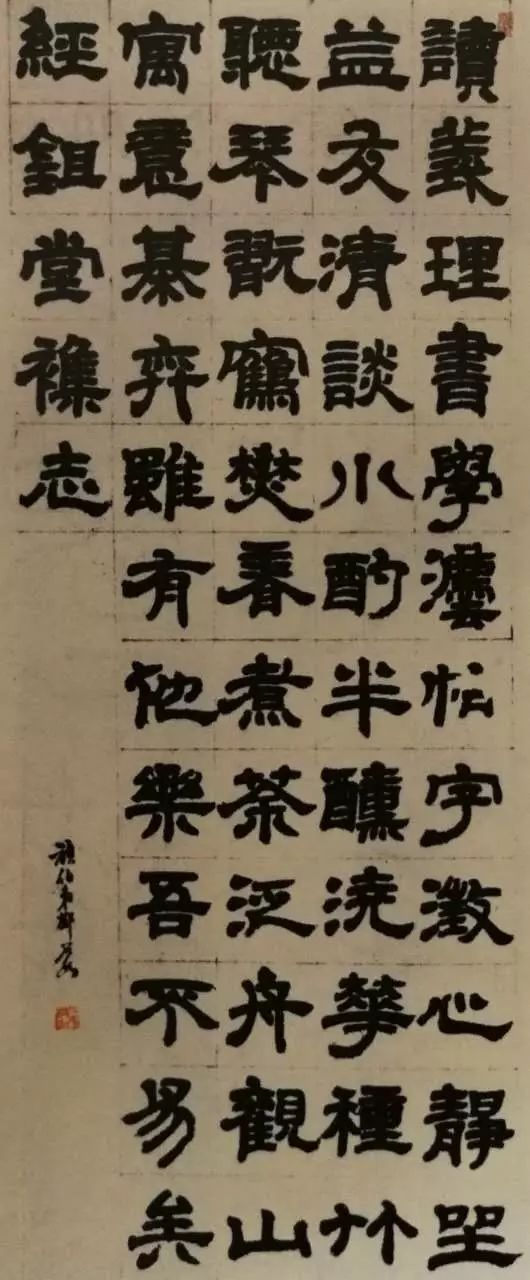 讀義理書學灋帖字澂心靜坐
益友清談小酌半醺澆華種竹
聽琴翫鶴燓香煮茶泛舟觀山
寓意棊弈雖有他樂吾不易矣
經鉏堂襍志